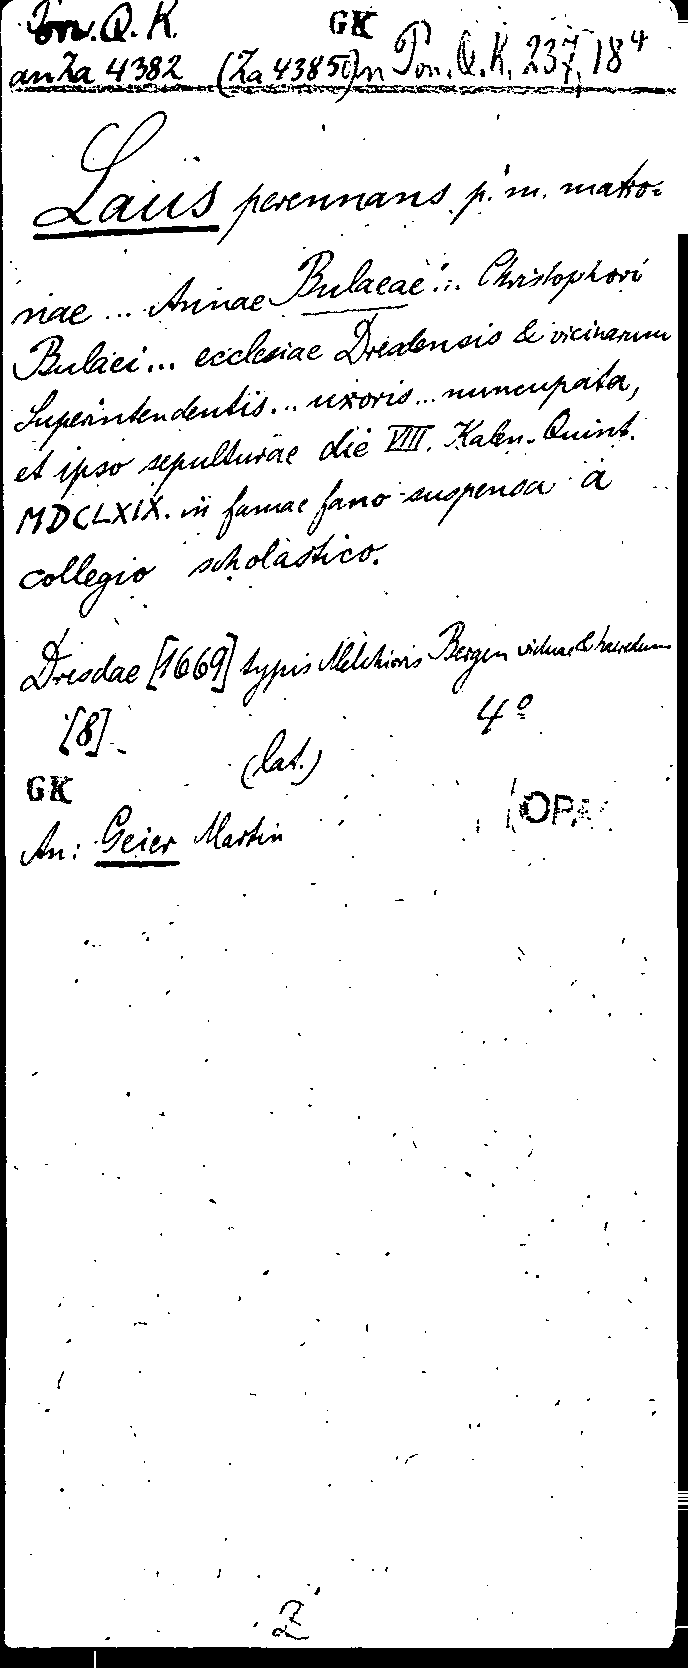 Pon. Q. K. GK
an Za 4382 (Za 4385) in Pon. Q. K. 237, 18⁴
Laus perennans p. m. matro-
nae ... Annae Bulaeae ... Christophori
Bulaei ... ecclesiae Dresdensis & vicinarum
Superintendentis ... uxoris ... nuncupata,
et ipso sepulturae die VIII. Kalen. Quint.
MDCLXIX. in famae fano suspensa a
collegio scholastico.
Dresdae [1669] typis Melchioris Bergen viduae & haeredum
[8]. 4°
(lat.)
GK
OPA
An: Geier Martin
Z